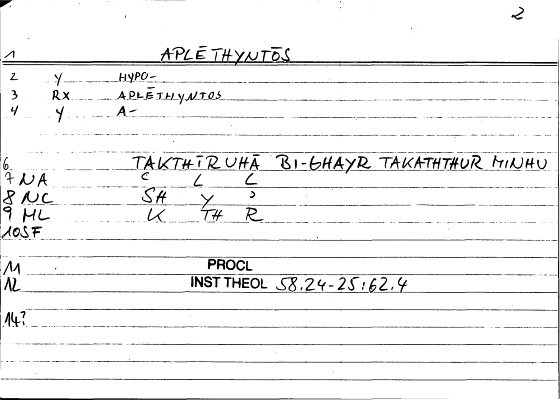 2
1 APLĒTHYNTŌS
2 Y HYPO-
3 RX APLĒTHYNTOS
4 Y A-
6 TAKTHĪRUHĀ BI-GHAYR TAKATHTHUR MINHU
7 NA C L L
8 NC SH Y ʾ
9 ML K TH R
10 SF
11 PROCL
12 INST THEOL 58.24-25; 62.4
14?